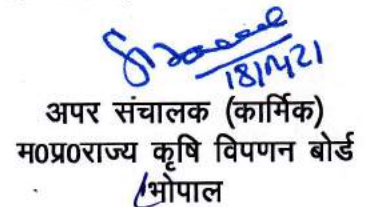 18/11/21
अपर संचालक (कार्मिक)
म0प्र0राज्य कृषि विपणन बोर्ड
भोपाल